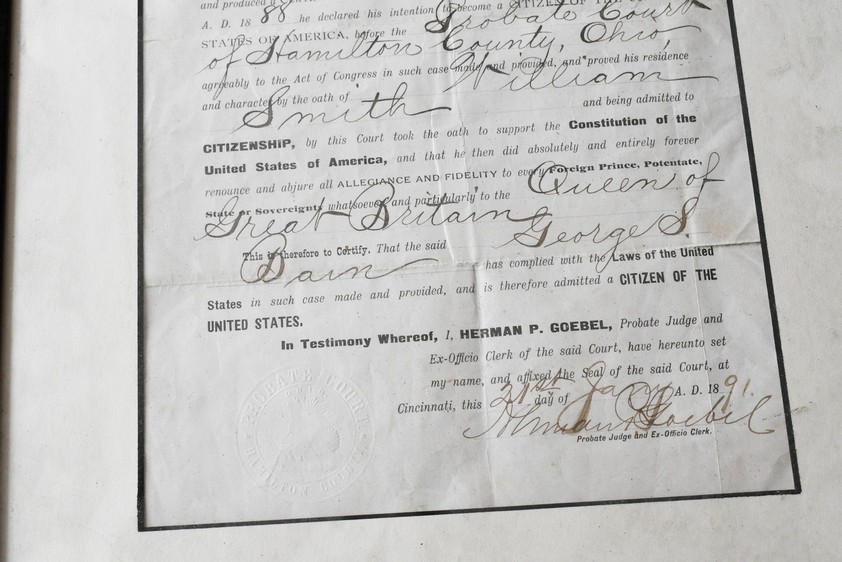 and produced a
A. D. 18 88 he declared his intention to become a CITIZEN OF THE
STATES OF AMERICA, before the Probate Court
of Hamilton County, Ohio,
agreeably to the Act of Congress in such case made and provided, and proved his residence
and character by the oath of William
Smith and being admitted to
CITIZENSHIP, by this Court took the oath to support the Constitution of the
United States of America, and that he then did absolutely and entirely forever
renounce and abjure all ALLEGIANCE AND FIDELITY to every Foreign Prince, Potentate,
State or Sovereignty whatsoever and particularly to the Queen of
Great Britain
This is therefore to Certify, That the said George S.
Bain has complied with the Laws of the United
States in such case made and provided, and is therefore admitted a CITIZEN OF THE
UNITED STATES.
In Testimony Whereof, I, HERMAN P. GOEBEL, Probate Judge and
Ex-Officio Clerk of the said Court, have hereunto set
my name, and affixed the Seal of the said Court, at
Cincinnati, this 21st day of Jany A. D. 18 91.
Herman P. Goebel
Probate Judge and Ex-Officio Clerk.
PROBATE COURT
HAMILTON COUNTY